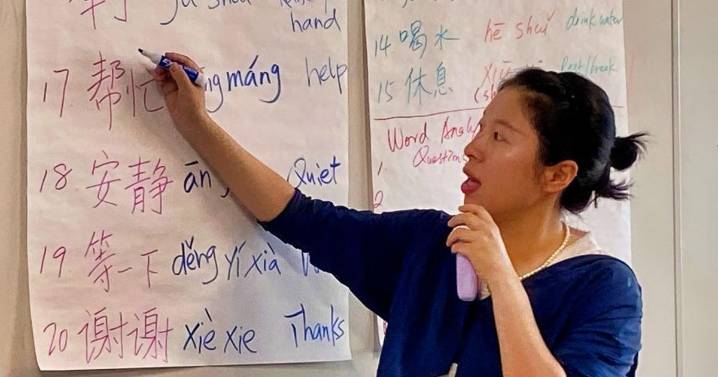 jǔ shǒu
hand
17 帮忙 máng help
18 安静 ān Quiet
19 等一下 děng yí xià
20 谢谢 xiè xie Thanks
14 喝水 hē shuǐ drink water
15 休息
Word
Question
1
2